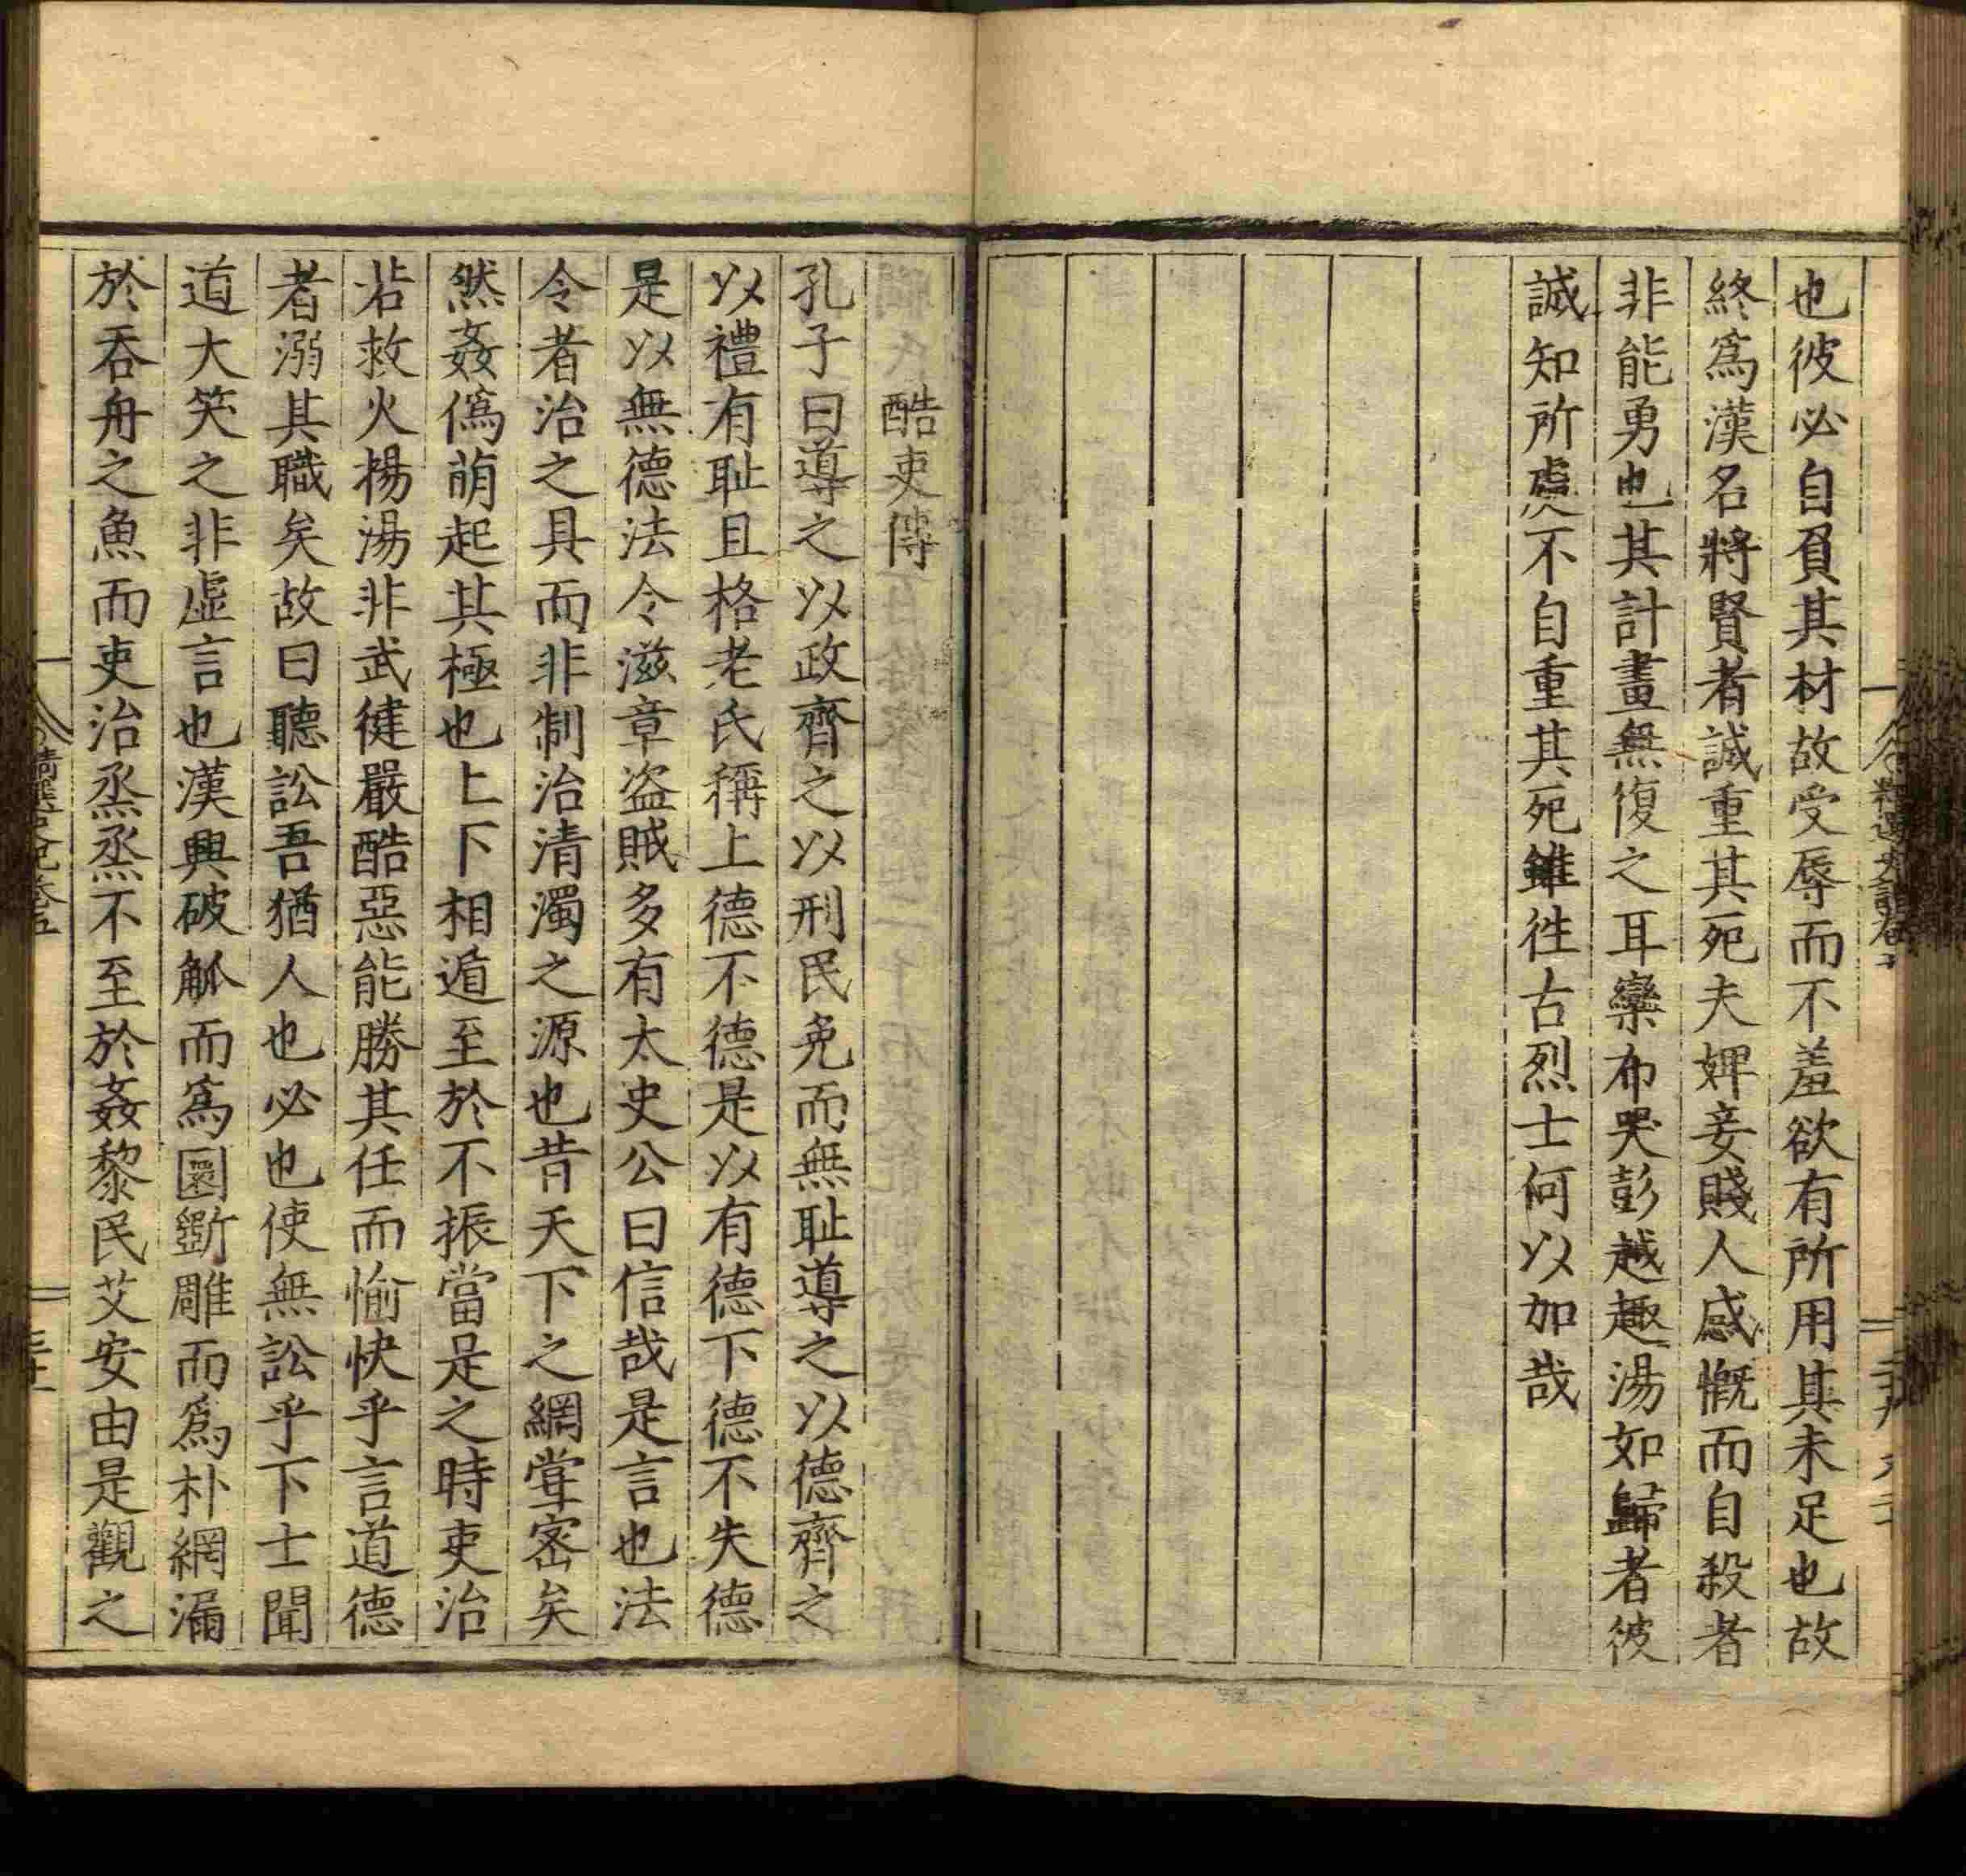 也彼必自負其材故受辱而不羞欲有所用其未足也故
終爲漢名將賢者誠重其死夫婢妾賤人感慨而自殺者
非能勇也其計畫無復之耳欒布哭彭越趣湯如歸者彼
誠知所處不自重其死雖徃古烈士何以加哉
酷吏傳
孔子曰導之以政齊之以刑民免而無恥導之以德齊之
以禮有恥且格老氏稱上德不德是以有德下德不失德
是以無德法令滋章盗賊多有太史公曰信哉是言也法
令者治之具而非制治清濁之源也昔天下之網嘗密矣
然姦僞萌起其極也上下相遁至於不振當是之時吏治
若救火揚湯非武健嚴酷惡能勝其任而愉快乎言道德
者溺其職矣故曰聽訟吾猶人也必也使無訟乎下士聞
道大笑之非虛言也漢興破觚而爲圜斵雕而爲朴網漏
於吞舟之魚而吏治烝烝不至於姦黎民艾安由是觀之